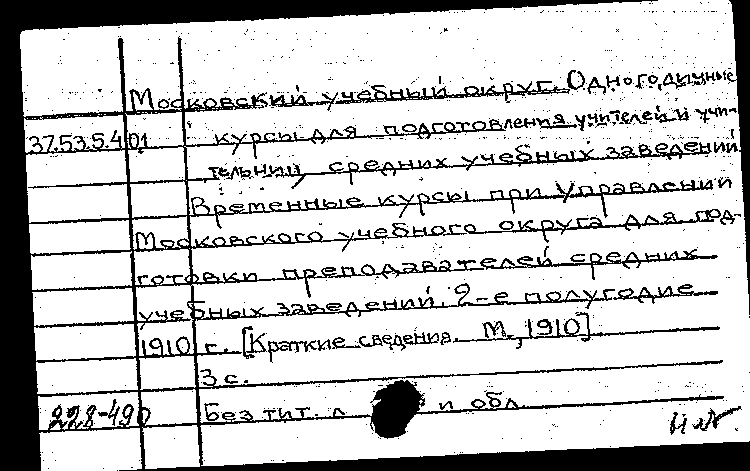 Московский учебный округ. Одногодичные
37.53.5.4.01 курсы для подготовления учителей и учи-
тельниц средних учебных заведений
Временные курсы при Управлении
Московского учебного округа для под-
готовки преподавателей средних
учебных заведений. 2-е полугодие
1910 г. [Краткие сведения. М., 1910].
3 с.
228-490 Без тит. л. и обл.